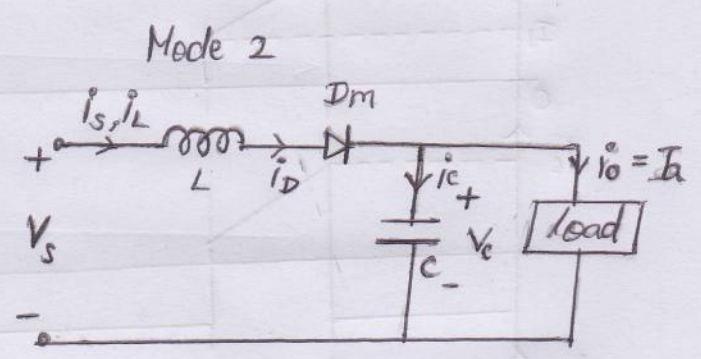 Mode 2
is, iL
Dm
+
L
iD
ic
+
io = Ia
Vs
Vc
Load
C
-
-